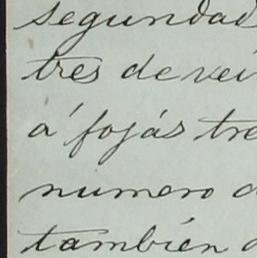 segundad
tres de vei
á fojás tre
numero d
también d